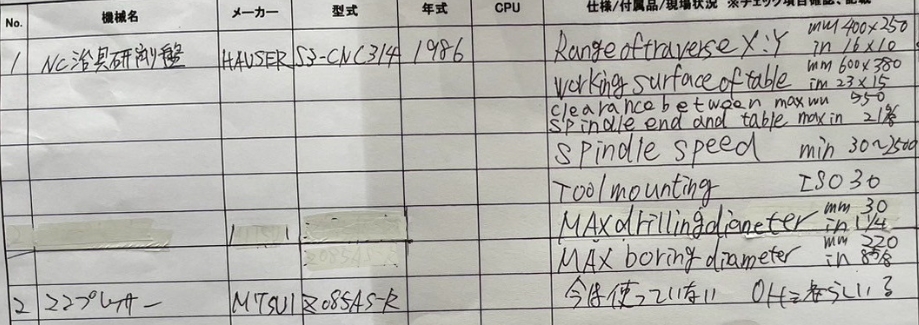 No. 機械名 メーカー 型式 年式 CPU 仕様/付属品/現場状況 ※チェック項目確認、記載
1 NC治具研削盤 HAUSER S3-CNC314 1986 Range of traverse X:Y mm 400×250
in 16×10
working surface of table mm 600×380
in 23×15
clearance between max mm 550
spindle end and table max in 21⅝
spindle speed min 30~2500
Tool mounting ISO 30
MAX drilling diameter mm 30
in 1 1/4
MAX boring diameter mm 220
in 8 5/8
2 ココプレッサー MTSUI Z085AS-R 今は使っていない